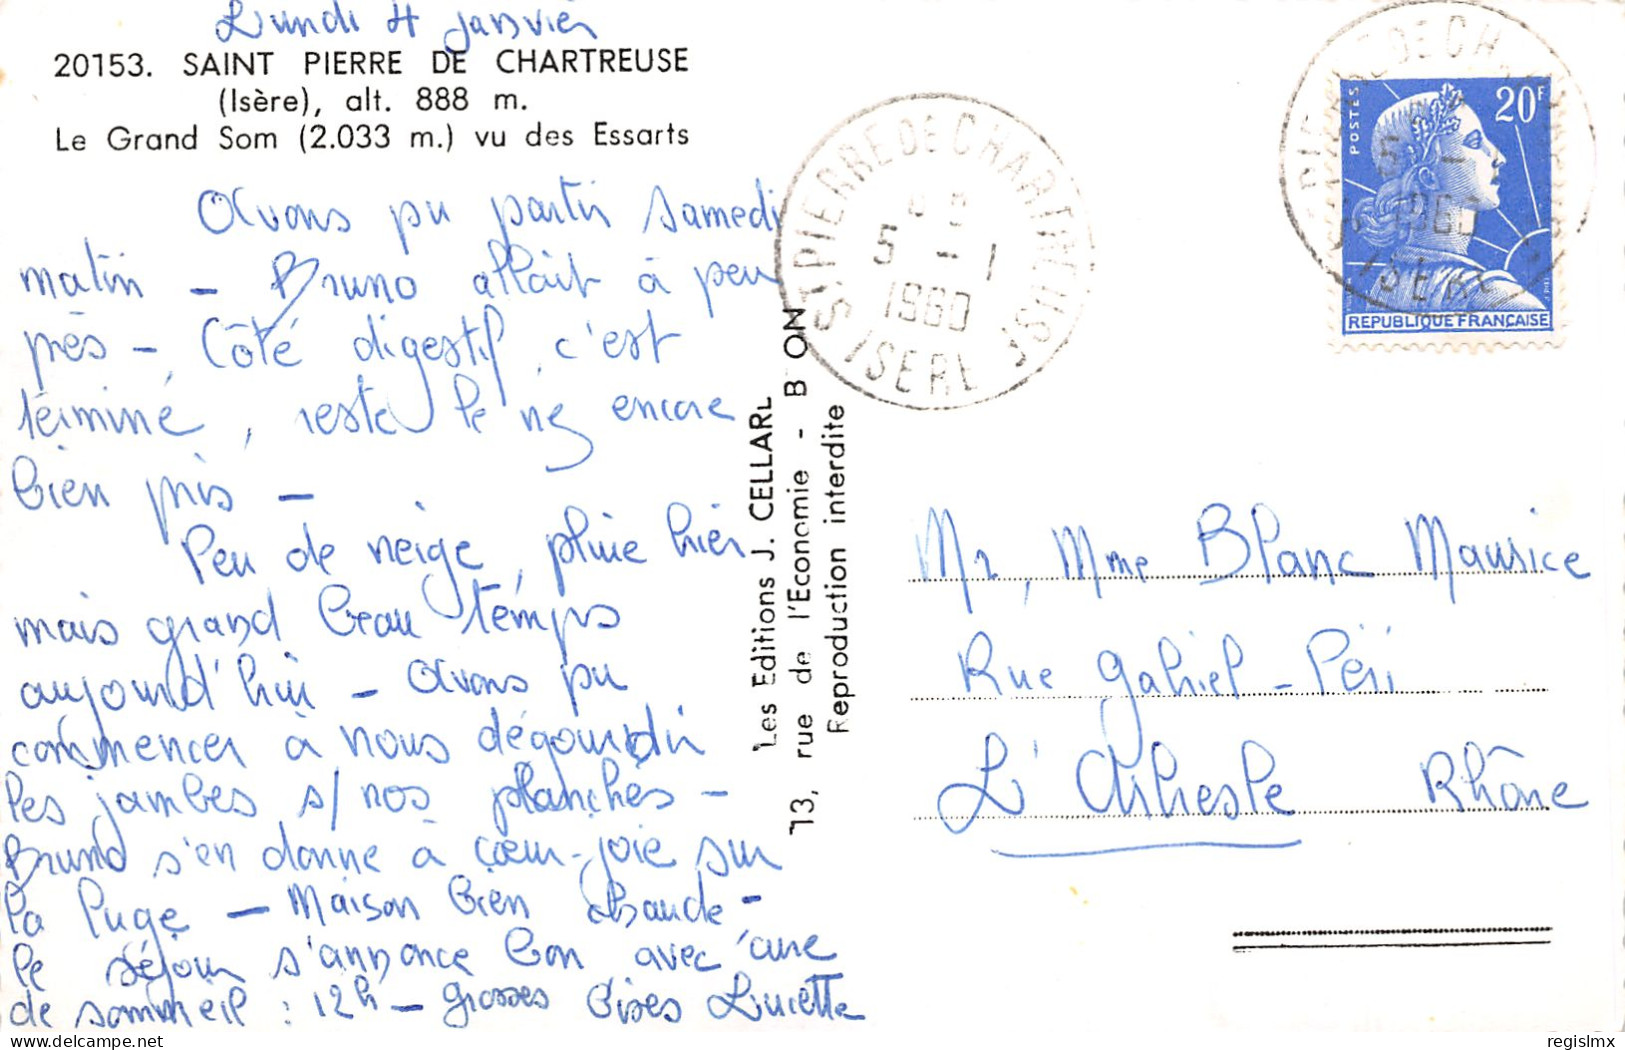 Lundi 4 janvier
20153. SAINT PIERRE DE CHARTREUSE
(Isère), alt. 888 m.
Le Grand Som (2.033 m.) vu des Essarts
Avons pu partir samedi
matin – Bruno allait à peu
près –, Côté digestif, c'est
terminé, reste le nez encore
bien pris –
Peu de neige, pluie hier
mais grand beau temps
aujourd'hui – Avons pu
commencer à nous dégourdir
les jambes s/ nos planches –
Bruno s'en donne à cœur-joie sur
la luge – Maison bien chaude –
le séjour s'annonce bon avec cure
de sommeil : 12h – grosses bises Lucette
Les Editions J. CELLARD
13, rue de l'Economie - B ON
Reproduction interdite
ST PIERRE DE CHARTREUSE
5 - 1
1960
ISERE
POSTES
20F
REPUBLIQUE FRANÇAISE
PIERRE DE CH
5 -
1960
ISERE
Mr, Mme Blanc Maurice
Rue Gabriel-Péri
L'Arbresle Rhône
regislmx